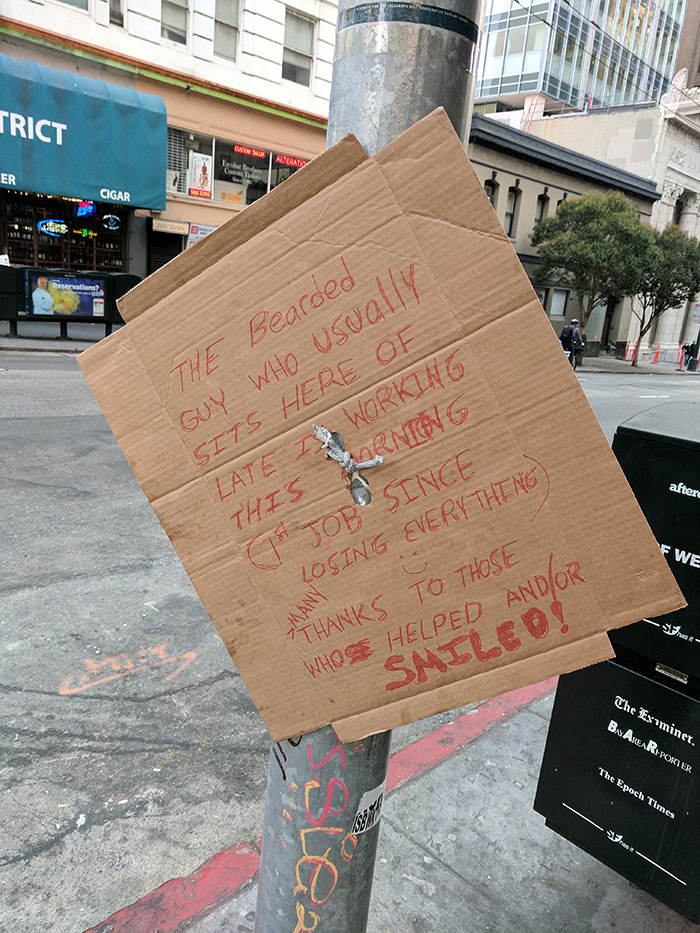 TRICT
ER
CIGAR
CUSTOM TAILOR
ALTERATION
Custom Tailors
Reservations?
THE Bearded
GUY WHO USUALLY
SITS HERE OF
LATE IS WORKING
THIS MORNING
(1st JOB SINCE
LOSING EVERYTHING)
MANY
THANKS TO THOSE
WHO HELPED AND/OR
SMILED!
after
F WE
SF has it
The Examiner.
BAY AREA REPORTER
The Epoch Times
SF has it